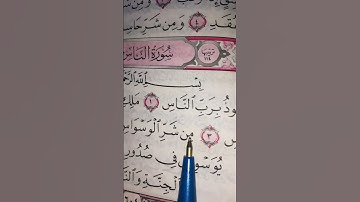 وَمِن شَرِّ حَاسِ
سُورَةُ النَّاسِ
بِسْمِ ٱللَّهِ ٱلرَّحْمَ
وذُ بِرَبِّ ٱلنَّاسِ ١ مَلِكِ
سِ ٣ مِن شَرِّ ٱلْوَسْوَاسِ
يُوَسْوِسُ فِى صُدُورِ
ٱلْجِنَّةِ وَٱلنَّ